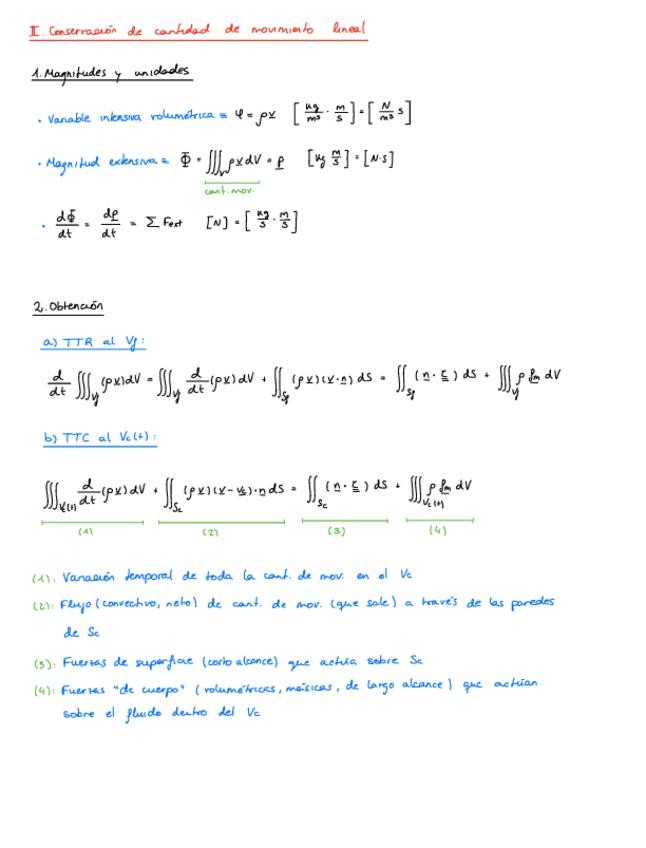 II. Conservación de cantidad de movimiento lineal
1. Magnitudes y unidades
• Variable intensiva volumétrica ≡ φ = ρv [kg/m³ · m/s] = [N/m³ s]
• Magnitud extensiva ≡ Φ = ∭ ρv dV = p [kg m/s] = [N·s]
cant. mov.
• dΦ/dt = dp/dt = Σ Fext [N] = [kg/s · m/s]
2. Obtención
a) TTR al Vf:
d/dt ∭_Vf (ρv)dV = ∭_Vf d/dt (ρv)dV + ∬_Sf (ρv)(v·n) dS = ∬_Sf (n·τ) dS + ∭_Vf ρ fm dV
b) TTC al Vc(t):
∭_Vc(t) d/dt (ρv)dV + ∬_Sc (ρv)(v-vc)·n dS = ∬_Sc (n·τ) dS + ∭_Vc(t) ρ fm dV
(1) (2) (3) (4)
(1): Variación temporal de toda la cant. de mov. en el Vc
(2): Flujo (convectivo, neto) de cant. de mov. (que sale) a través de las paredes
de Sc
(3): Fuerzas de superficie (corto alcance) que actúa sobre Sc
(4): Fuerzas "de cuerpo" (volumétricas, másicas, de largo alcance) que actúan
sobre el fluido dentro del Vc